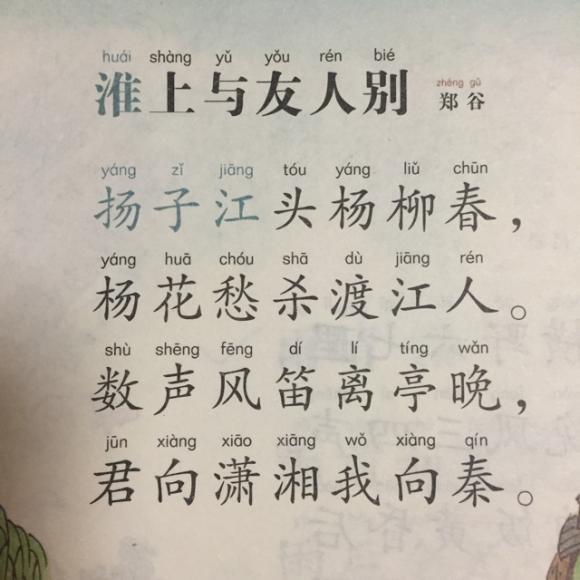 huái shàng yǔ yǒu rén bié
淮上与友人别
zhèng gǔ
郑谷
yáng zǐ jiāng tóu yáng liǔ chūn
扬子江头杨柳春，
yáng huā chóu shā dù jiāng rén
杨花愁杀渡江人。
shù shēng fēng dí lí tíng wǎn
数声风笛离亭晚，
jūn xiàng xiāo xiāng wǒ xiàng qín
君向潇湘我向秦。